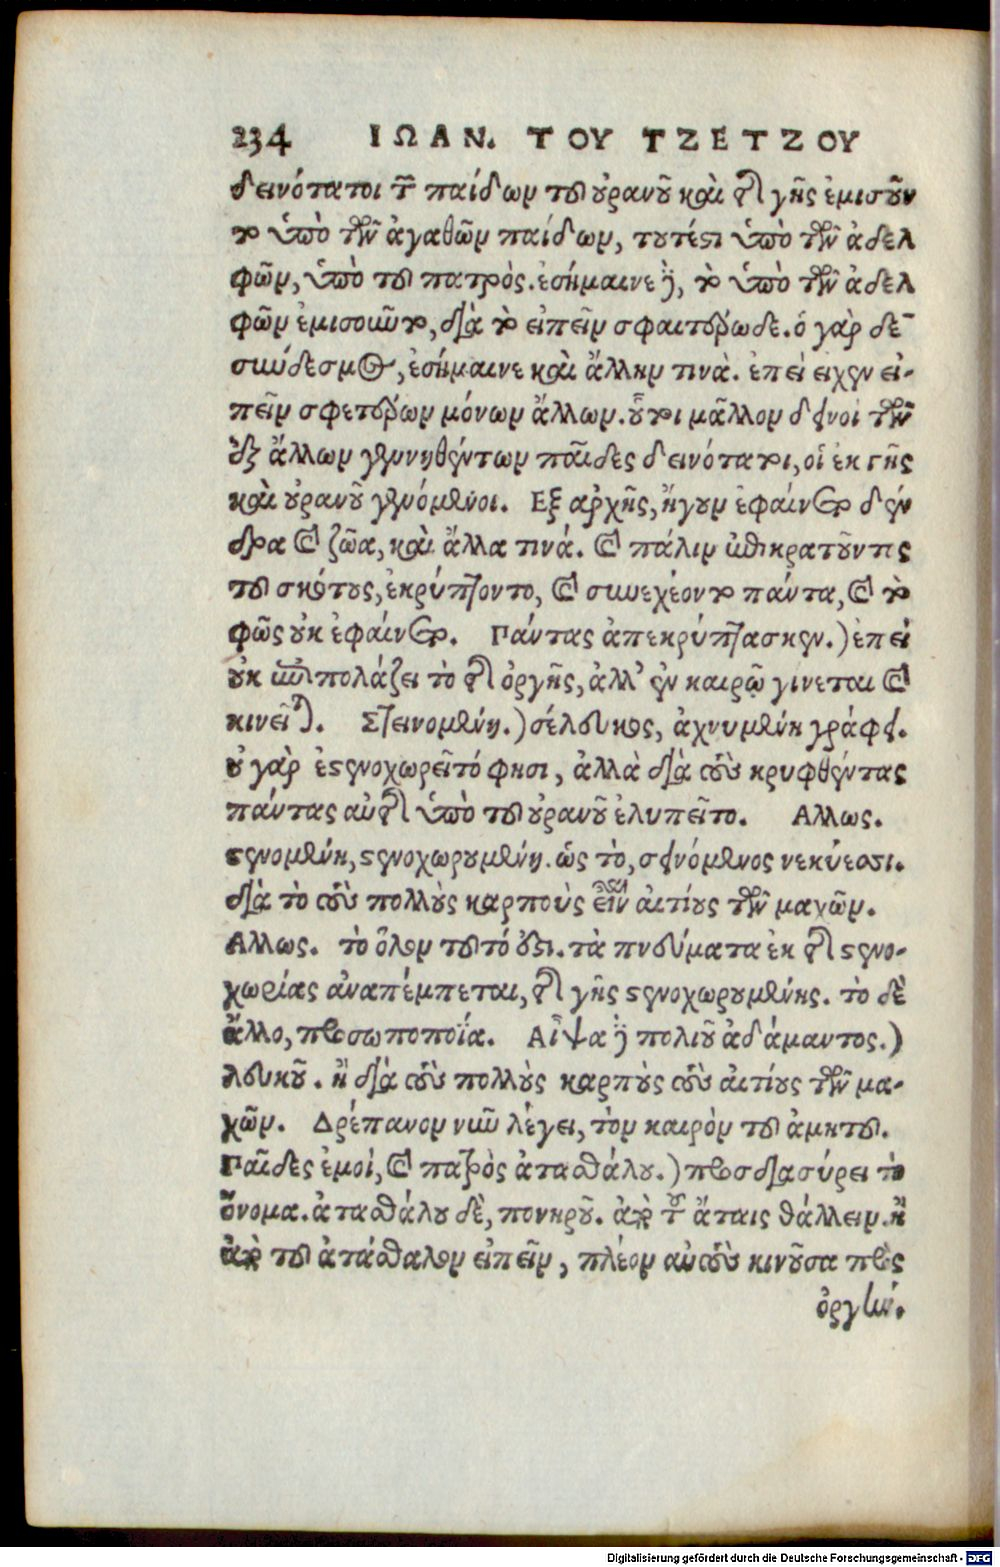 234 ΙΩΑΝ. ΤΟΥ ΤΖΕΤΖΟΥ
δεινότατοι τῶν παίδων τοῦ οὐρανοῦ καὶ τῆς γῆς ἐμισοῦν
το ὑπὸ τῶν ἀγαθῶν παίδων, τουτέστι ὑπὸ τῶν ἀδελ
φῶν, ὑπὸ τοῦ πατρὸς. ἐσήμαινε δὲ, τὸ ὑπὸ τῶν ἀδελ
φῶν ἐμισοιῦντο, διὰ το εἰπεῖν σφαιτέρω δε. ὁ γὰρ δε
σύνδεσμος, ἐσήμαινε καὶ ἄλλην τινὰ. ἐπεὶ εἰχεν εἰ-
πεῖν σφετέρων μόνων ἄλλων. οὗτοι μᾶλλον δεινοὶ τῶν
ἐξ ἄλλων γεννηθέντων παῖδες δεινότατοι, οἱ ἐκ γῆς
καὶ οὐρανοῦ γενόμενοι. Εξ αρχῆς, ἤγουν ἐφαίνετο δέν
δρα καὶ ζῶα, καὶ ἄλλα τινά. καὶ πάλιν ἐπικρατοῦντες
τοῦ σκότους, ἐκρύπτοντο, καὶ συνεχέοντο πάντα, καὶ τὸ
φῶς οὐκ ἐφαίνετο. Πάντας ἀπεκρύπτασκεν.) ἐπεὶ
οὐκ ἐπιπολάζει τὸ τῆς ὀργῆς, ἀλλ' ἐν καιρῷ γίνεται καὶ
κινεῖται. Στεινομένη.) σέλευκος, ἀχνυμένη γράφει.
οὐ γὰρ ἐστενοχωρεῖτό φησι, ἀλλὰ διὰ τοὺς κρυφθέντας
πάντας αὐτῆς ὑπὸ τοῦ οὐρανοῦ ἐλυπεῖτο. Αλλως.
στενομένη, στενοχωρουμένη. ὡς τὸ, στεινόμενος νεκύεσσι.
διὰ τὸ τοὺς πολλοὺς καρποὺς εἶναι αἰτίους τῶν μαχῶν.
Αλλως. τὸ ὅλον τοῦτό ἐστι. τὰ πνεύματα ἐκ τῆς στενο-
χωρίας ἀναπέμπεται, τῆς γῆς στενοχωρουμένης. τὸ δὲ
ἄλλο, προσωποποιΐα. Αἶψα δὲ πολιοῦ ἀδάμαντος.)
λευκοῦ. ἢ διὰ τοὺς πολλοὺς καρποὺς τοὺς αἰτίους τῶν μα-
χῶν. Δρέπανον νῦν λέγει, τὸν καιρὸν τοῦ ἀμητοῦ.
Παῖδες ἐμοὶ, καὶ πατρὸς ἀτασθάλου.) προσδιασύρει τὸ
ὄνομα. ἀτασθάλου δὲ, πονηροῦ. ἀπὸ τοῦ ἄταις θάλλειν. ἢ
ἀπὸ τοῦ ἀτάσθαλον εἰπεῖν, πλέον αὐτοὺς κινοῦσα πρὸς
ὀργὴν.
Digitalisierung gefördert durch die Deutsche Forschungsgemeinschaft - DFG